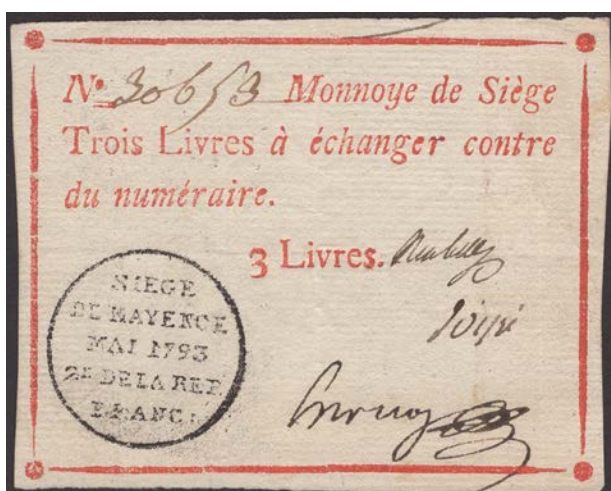 Nº 30653 Monnoye de Siège
Trois Livres à échanger contre
du numéraire.
3 Livres.
SIEGE
DE MAYENCE
MAI 1793
2E DE LA REP
FRANC: